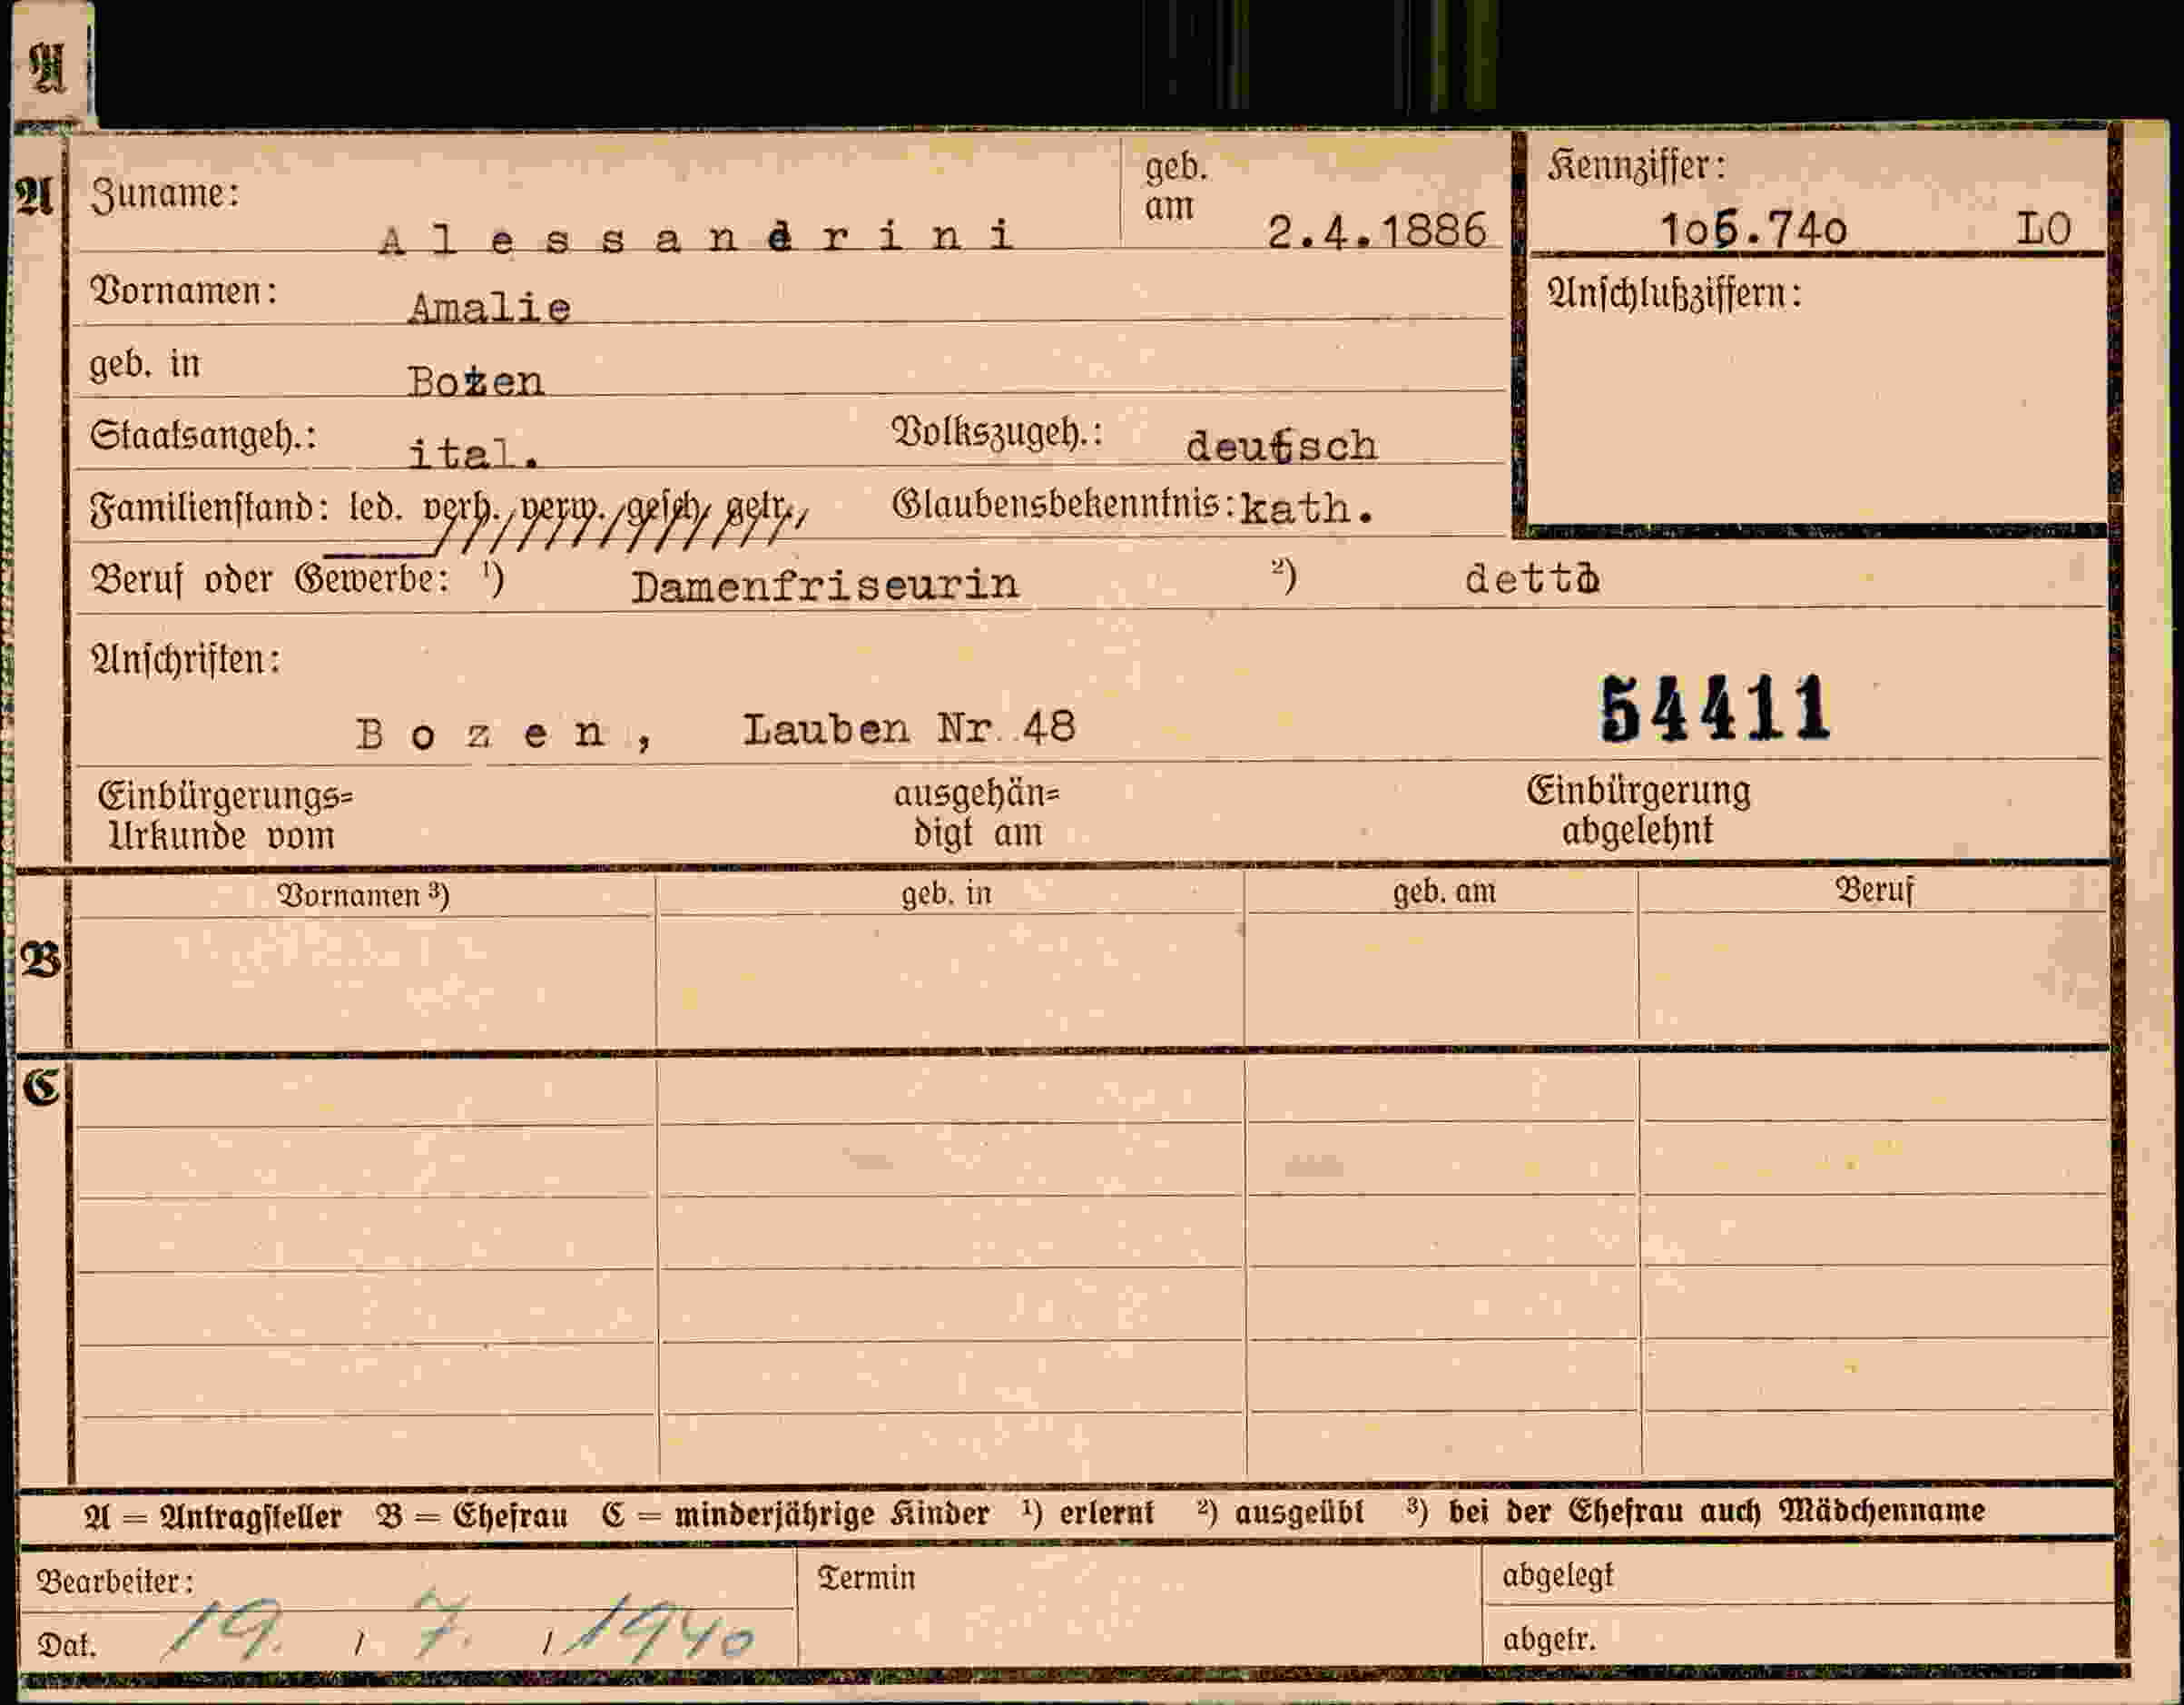 A
A Zuname: Alessandrini geb. am 2.4.1886 Kennziffer: 1o6.74o LO
Vornamen: Amalie Anschlußziffern:
geb. in Bozen
Staatsangeh.: ital. Volkszugeh.: deutsch
Familienstand: led. verh., verw., gesch., getr., Glaubensbekenntnis: kath.
Beruf oder Gewerbe: ¹) Damenfriseurin ²) detto
Anschriften:
Bozen, Lauben Nr. 48 54411
Einbürgerungs= ausgehän= Einbürgerung
Urkunde vom digt am abgelehnt
Vornamen ³) geb. in geb. am Beruf
B
C
A = Antragsteller B = Ehefrau C = minderjährige Kinder ¹) erlernt ²) ausgeübt ³) bei der Ehefrau auch Mädchenname
Bearbeiter: Termin abgelegt
Dat. 19. / 7. / 1940 abgetr.